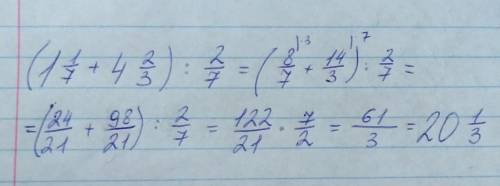 (1 1/7 + 4 2/3) : 2/7 = (8/7 |·3 + 14/3 |·7) : 2/7 =
= (24/21 + 98/21) : 2/7 = 122/21 · 7/2 = 61/3 = 20 1/3